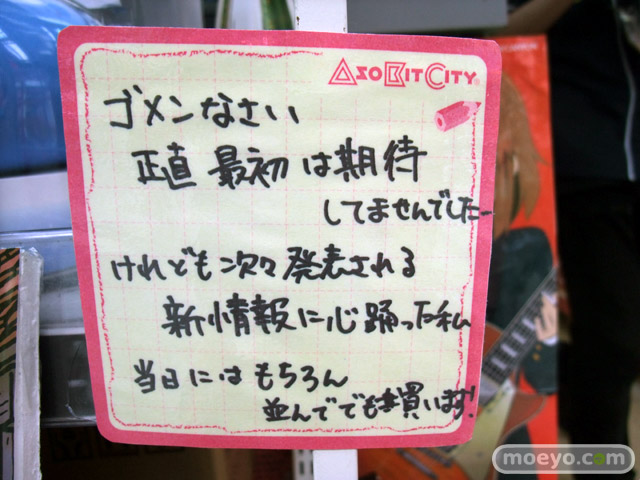 ASOBITCITY
ゴメンなさい
正直 最初は期待
してませんでしたー
けれども次々発表される
新情報に心踊った私
当日にはもちろん
並んででも買います!
moeyo.com